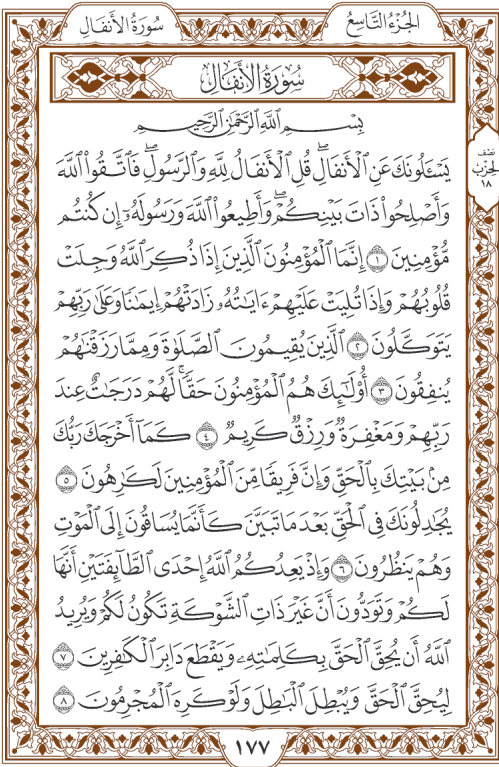 الجُزْءُ التَّاسِعُ
سُورَةُ الأَنفَالِ
سُورَةُ الأَنفَالِ
بِسْمِ اللَّهِ الرَّحْمَٰنِ الرَّحِيمِ
نِصْف
الحِزْبِ
١٨
يَسْـَٔلُونَكَ عَنِ ٱلْأَنفَالِۖ قُلِ ٱلْأَنفَالُ لِلَّهِ وَٱلرَّسُولِۖ فَٱتَّقُوا۟ ٱللَّهَ
وَأَصْلِحُوا۟ ذَاتَ بَيْنِكُمْۖ وَأَطِيعُوا۟ ٱللَّهَ وَرَسُولَهُۥٓ إِن كُنتُم
مُّؤْمِنِينَ ١ إِنَّمَا ٱلْمُؤْمِنُونَ ٱلَّذِينَ إِذَا ذُكِرَ ٱللَّهُ وَجِلَتْ
قُلُوبُهُمْ وَإِذَا تُلِيَتْ عَلَيْهِمْ ءَايَٰتُهُۥ زَادَتْهُمْ إِيمَٰنًا وَعَلَىٰ رَبِّهِمْ
يَتَوَكَّلُونَ ٢ ٱلَّذِينَ يُقِيمُونَ ٱلصَّلَوٰةَ وَمِمَّا رَزَقْنَٰهُمْ
يُنفِقُونَ ٣ أُو۟لَٰٓئِكَ هُمُ ٱلْمُؤْمِنُونَ حَقًّاۚ لَّهُمْ دَرَجَٰتٌ عِندَ
رَبِّهِمْ وَمَغْفِرَةٌ وَرِزْقٌ كَرِيمٌ ٤ كَمَآ أَخْرَجَكَ رَبُّكَ
مِنۢ بَيْتِكَ بِٱلْحَقِّ وَإِنَّ فَرِيقًا مِّنَ ٱلْمُؤْمِنِينَ لَكَٰرِهُونَ ٥
يُجَٰدِلُونَكَ فِى ٱلْحَقِّ بَعْدَ مَا تَبَيَّنَ كَأَنَّمَا يُسَاقُونَ إِلَى ٱلْمَوْتِ
وَهُمْ يَنظُرُونَ ٦ وَإِذْ يَعِدُكُمُ ٱللَّهُ إِحْدَى ٱلطَّآئِفَتَيْنِ أَنَّهَا
لَكُمْ وَتَوَدُّونَ أَنَّ غَيْرَ ذَاتِ ٱلشَّوْكَةِ تَكُونُ لَكُمْ وَيُرِيدُ
ٱللَّهُ أَن يُحِقَّ ٱلْحَقَّ بِكَلِمَٰتِهِۦ وَيَقْطَعَ دَابِرَ ٱلْكَٰفِرِينَ ٧
لِيُحِقَّ ٱلْحَقَّ وَيُبْطِلَ ٱلْبَٰطِلَ وَلَوْ كَرِهَ ٱلْمُجْرِمُونَ ٨
١٧٧